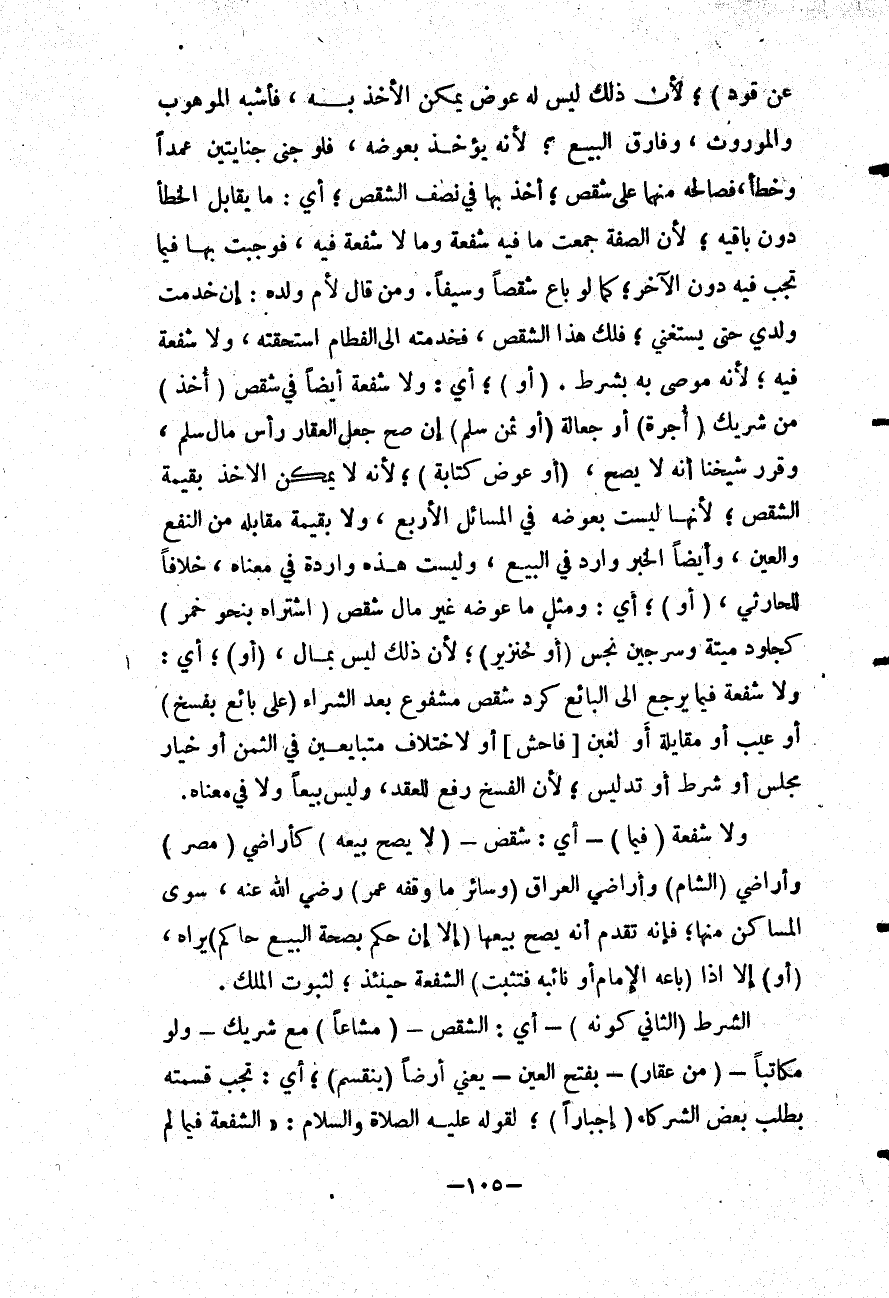 عن قود ) ؛ لأن ذلك ليس له عوض يمكن الأخذ بـــه ، فأشبه الموهوب
والموروث ، وفارق البيع ؟ لأنه يؤخـذ بعوضه ، فلو جنى جنايتين عمداً
وخطأ ، فصالحه منها على شقص ؛ أخذ بها في نصف الشقص ؛ أي : ما يقابل الخطأ
دون باقيه ؛ لأن الصفة جمعت ما فيه شفعة وما لا شفعة فيه ، فوجبت بهـا فيما
تجب فيه دون الآخر ؛ كما لو باع شقصاً وسيفاً . ومن قال لأم ولده : إن خدمت
ولدي حتى يستغني ؛ فلك هذا الشقص ، فخدمته الى الفطام استحقته ، ولا شفعة
فيه ؛ لأنه موصى به بشرط . ( أو ) ؛ أي : ولا شفعة أيضاً في شقص ( أُخذ )
من شريك ( أُجرة ) أو جعالة ( أو ثمن سلم ) إن صح جعل العقار رأس مال سلم ،
وقرر شيخنا أنه لا يصح ، ( أو عوض كتابة ) ؛ لأنه لا يمكن الاخذ بقيمة
الشقص ؛ لأنهـا ليست بعوضه في المسائل الأربع ، ولا بقيمة مقابله من النفع
والعين ، وأيضاً الخبر وارد في البيع ، وليست هـذه واردة في معناه ، خلافاً
للحارثي ، ( أو ) ؛ أي : ومثل ما عوضه غير مال شقص ( اشتراه بنحو خمر )
كجلود ميتة وسرجين نجس ( أو خنزير ) ؛ لأن ذلك ليس بمـال ، ( أو ) ؛ أي :
ولا شفعة فيما يرجع الى البائع كرد شقص مشفوع بعد الشراء ( على بائع بفسخ )
أو عيب أو مقايلة أو لغبن [ فاحش ] أو لاختلاف متبايعـين في الثمن أو خيار
مجلس أو شرط أو تدليس ؛ لأن الفسخ رفع للعقد ، وليس بيعاً ولا في معناه .
ولا شفعة ( فيما ) – أي : شقص – ( لا يصح بيعه ) كأراضي ( مصر )
وأراضي ( الشام ) وأراضي العراق ( وسائر ما وقفه عمر ) رضي الله عنه ، سوى
المساكن منها ؛ فإنه تقدم أنه يصح بيعها ( إلا إن حكم بصحة البيـع حاكم ) يراه ،
( أو ) إلا اذا ( باعه الإمام أو نائبه فتثبت ) الشفعة حينئذ ؛ لثبوت الملك .
الشرط ( الثاني كونه ) – أي : الشقص – ( مشاعاً ) مع شريك – ولو
مكاتباً – ( من عقار ) – بفتح العين – يعني أرضاً ( ينقسم ) ؛ أي : تجب قسمته
بطلب بعض الشركاء ( إجباراً ) ؛ لقوله عليـه الصلاة والسلام : « الشفعة فيما لم
–١٠٥–